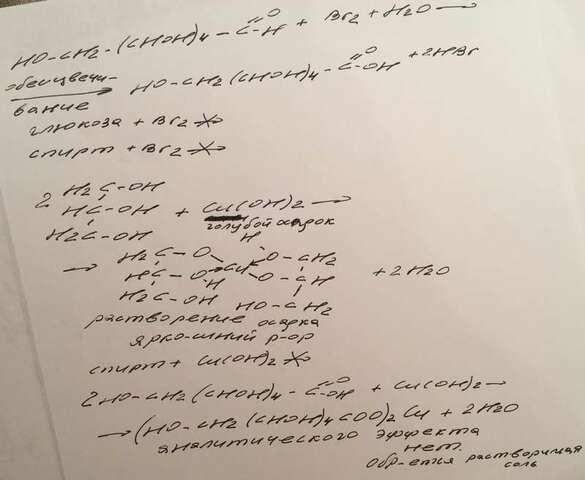 HO-CH2-(CHOH)4-C(=O)-H + Br2 + H2O →
обесцвечи-
вание → HO-CH2(CHOH)4-C(=O)-OH + 2HBr
глюкоза + Br2 ↛
спирт + Br2 ↛
2 H2C-OH
HC-OH + Cu(OH)2 →
H2C-OH голубой осадок
H
→ H2C-O O-CH2
HC-O Cu O-CH + 2H2O
H
H2C-OH HO-CH2
растворение осадка
ярко-синий р-ор
спирт + Cu(OH)2 ↛
2HO-CH2(CHOH)4-C(=O)-OH + Cu(OH)2 →
→ (HO-CH2(CHOH)4COO)2Cu + 2H2O
аналитического эффекта
нет.
Обр-ется растворимая
соль